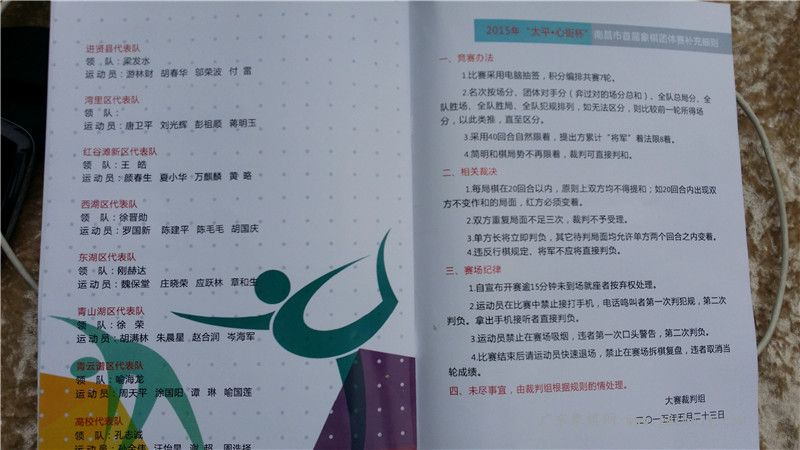 进贤县代表队
领 队：梁发水
运动员：游林财 胡春华 邬荣波 付 雷
湾里区代表队
领 队：
运动员：唐卫平 刘光辉 彭祖顺 蒋明玉
红谷滩新区代表队
领 队：王 皓
运动员：颜春生 夏小华 万麒麟 黄 略
西湖区代表队
领 队：徐晋勋
运动员：罗国新 陈建平 陈毛毛 胡国庆
东湖区代表队
领 队：刚赫达
运动员：魏保堂 庄晓荣 应跃林 章和生
青山湖区代表队
领 队：徐 荣
运动员：胡满林 朱晨星 赵合润 岑海军
青云谱区代表队
领 队：喻海龙
运动员：周天平 涂国阳 谭 琳 喻国莲
高校代表队
领 队：孔志诚
运动员：孙全伟 汪怡昊 谢 超 周选择
2015年“太平·心街杯”南昌市首届象棋团体赛补充细则
一、竞赛办法
1.比赛采用电脑抽签，积分编排共赛7轮。
2.名次按场分、团体对手分（弃过对的场分总和）、全队总局分、全
队胜场、全队胜局、全队犯规排列，如无法区分，则比较前一轮所得场
分，以此类推，直至区分。
3.采用40回合自然限着，提出方累计“将军”着法限8着。
4.简明和棋局势不再限着，裁判可直接判和。
二、相关裁决
1.每局棋在20回合以内，原则上双方均不得提和；如20回合内出现双
方不变作和的局面，红方必须变着。
2.双方重复局面不足三次，裁判不予受理。
3.单方长将立即判负，其它待判局面均允许单方两个回合之内变着。
4.违反行棋规定、将军不应将直接判负。
三、赛场纪律
1.自宣布开赛逾15分钟未到场就座者按弃权处理。
2.运动员在比赛中禁止接打手机，电话鸣叫者第一次判犯规，第二次
判负。拿出手机接听者直接判负。
3.运动员禁止在赛场吸烟，违者第一次口头警告，第二次判负。
4.比赛结束后请运动员快速退场，禁止在赛场拆棋复盘，违者取消当
轮成绩。
四、未尽事宜，由裁判组根据规则酌情处理。
大赛裁判组
二〇一五年五月二十三日